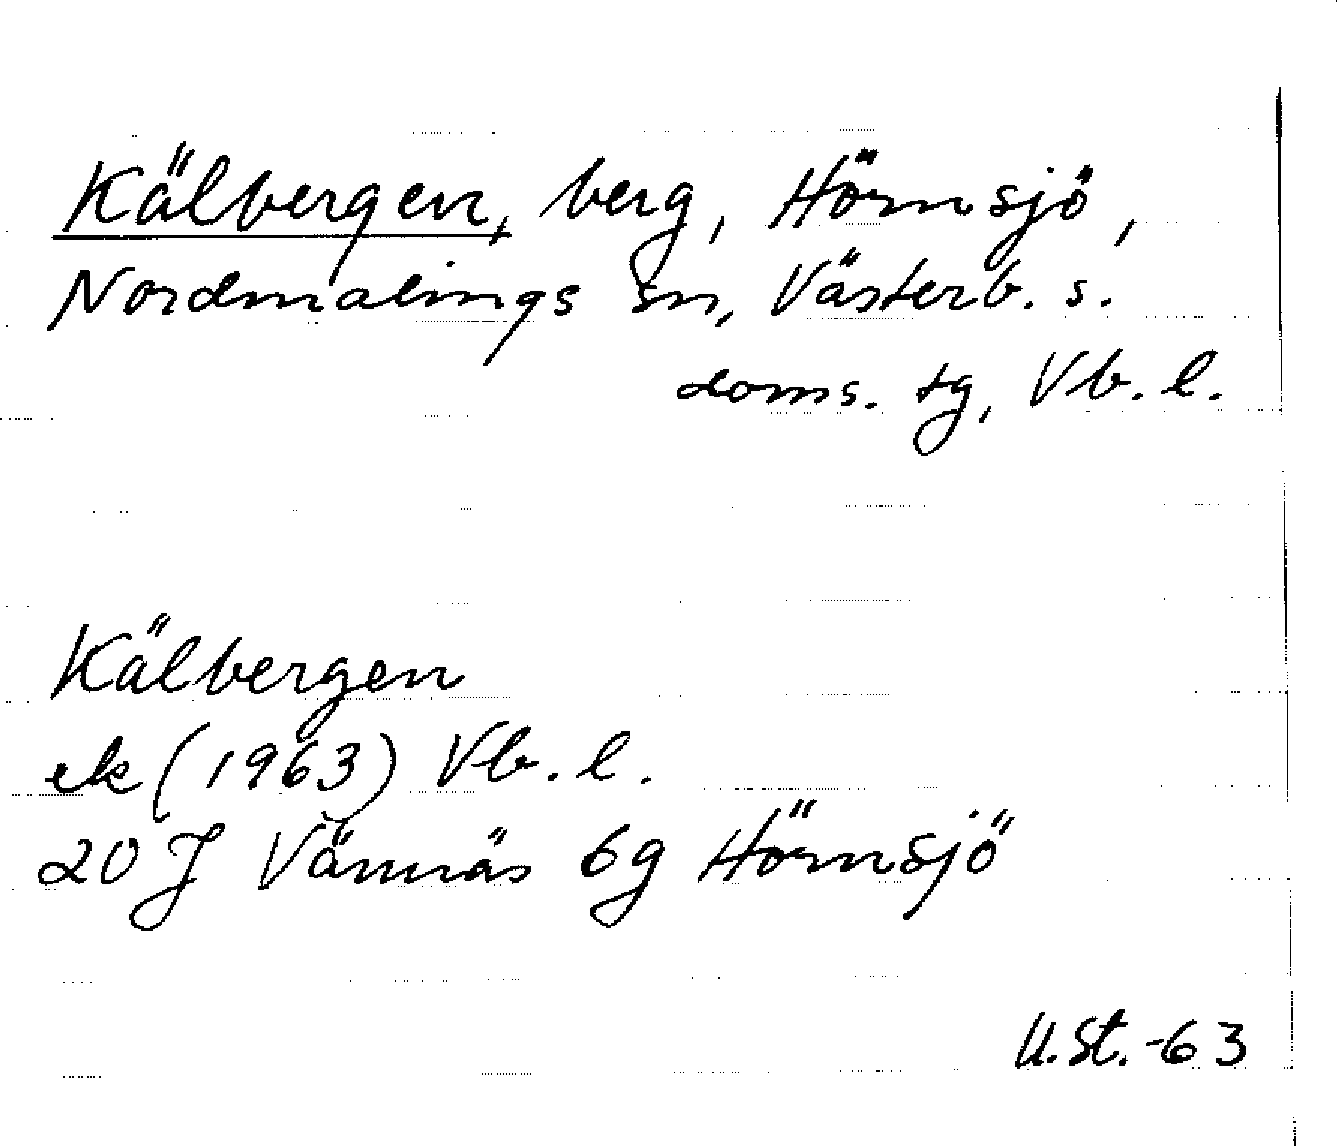 Kälbergen, berg, Hörnsjö,
Nordmalings sn, Västerb. s.
doms. tg, Vb. l.
Kälbergen
ek (1963) Vb. l.
20 J Vännäs 6g Hörnsjö
U.St.-63